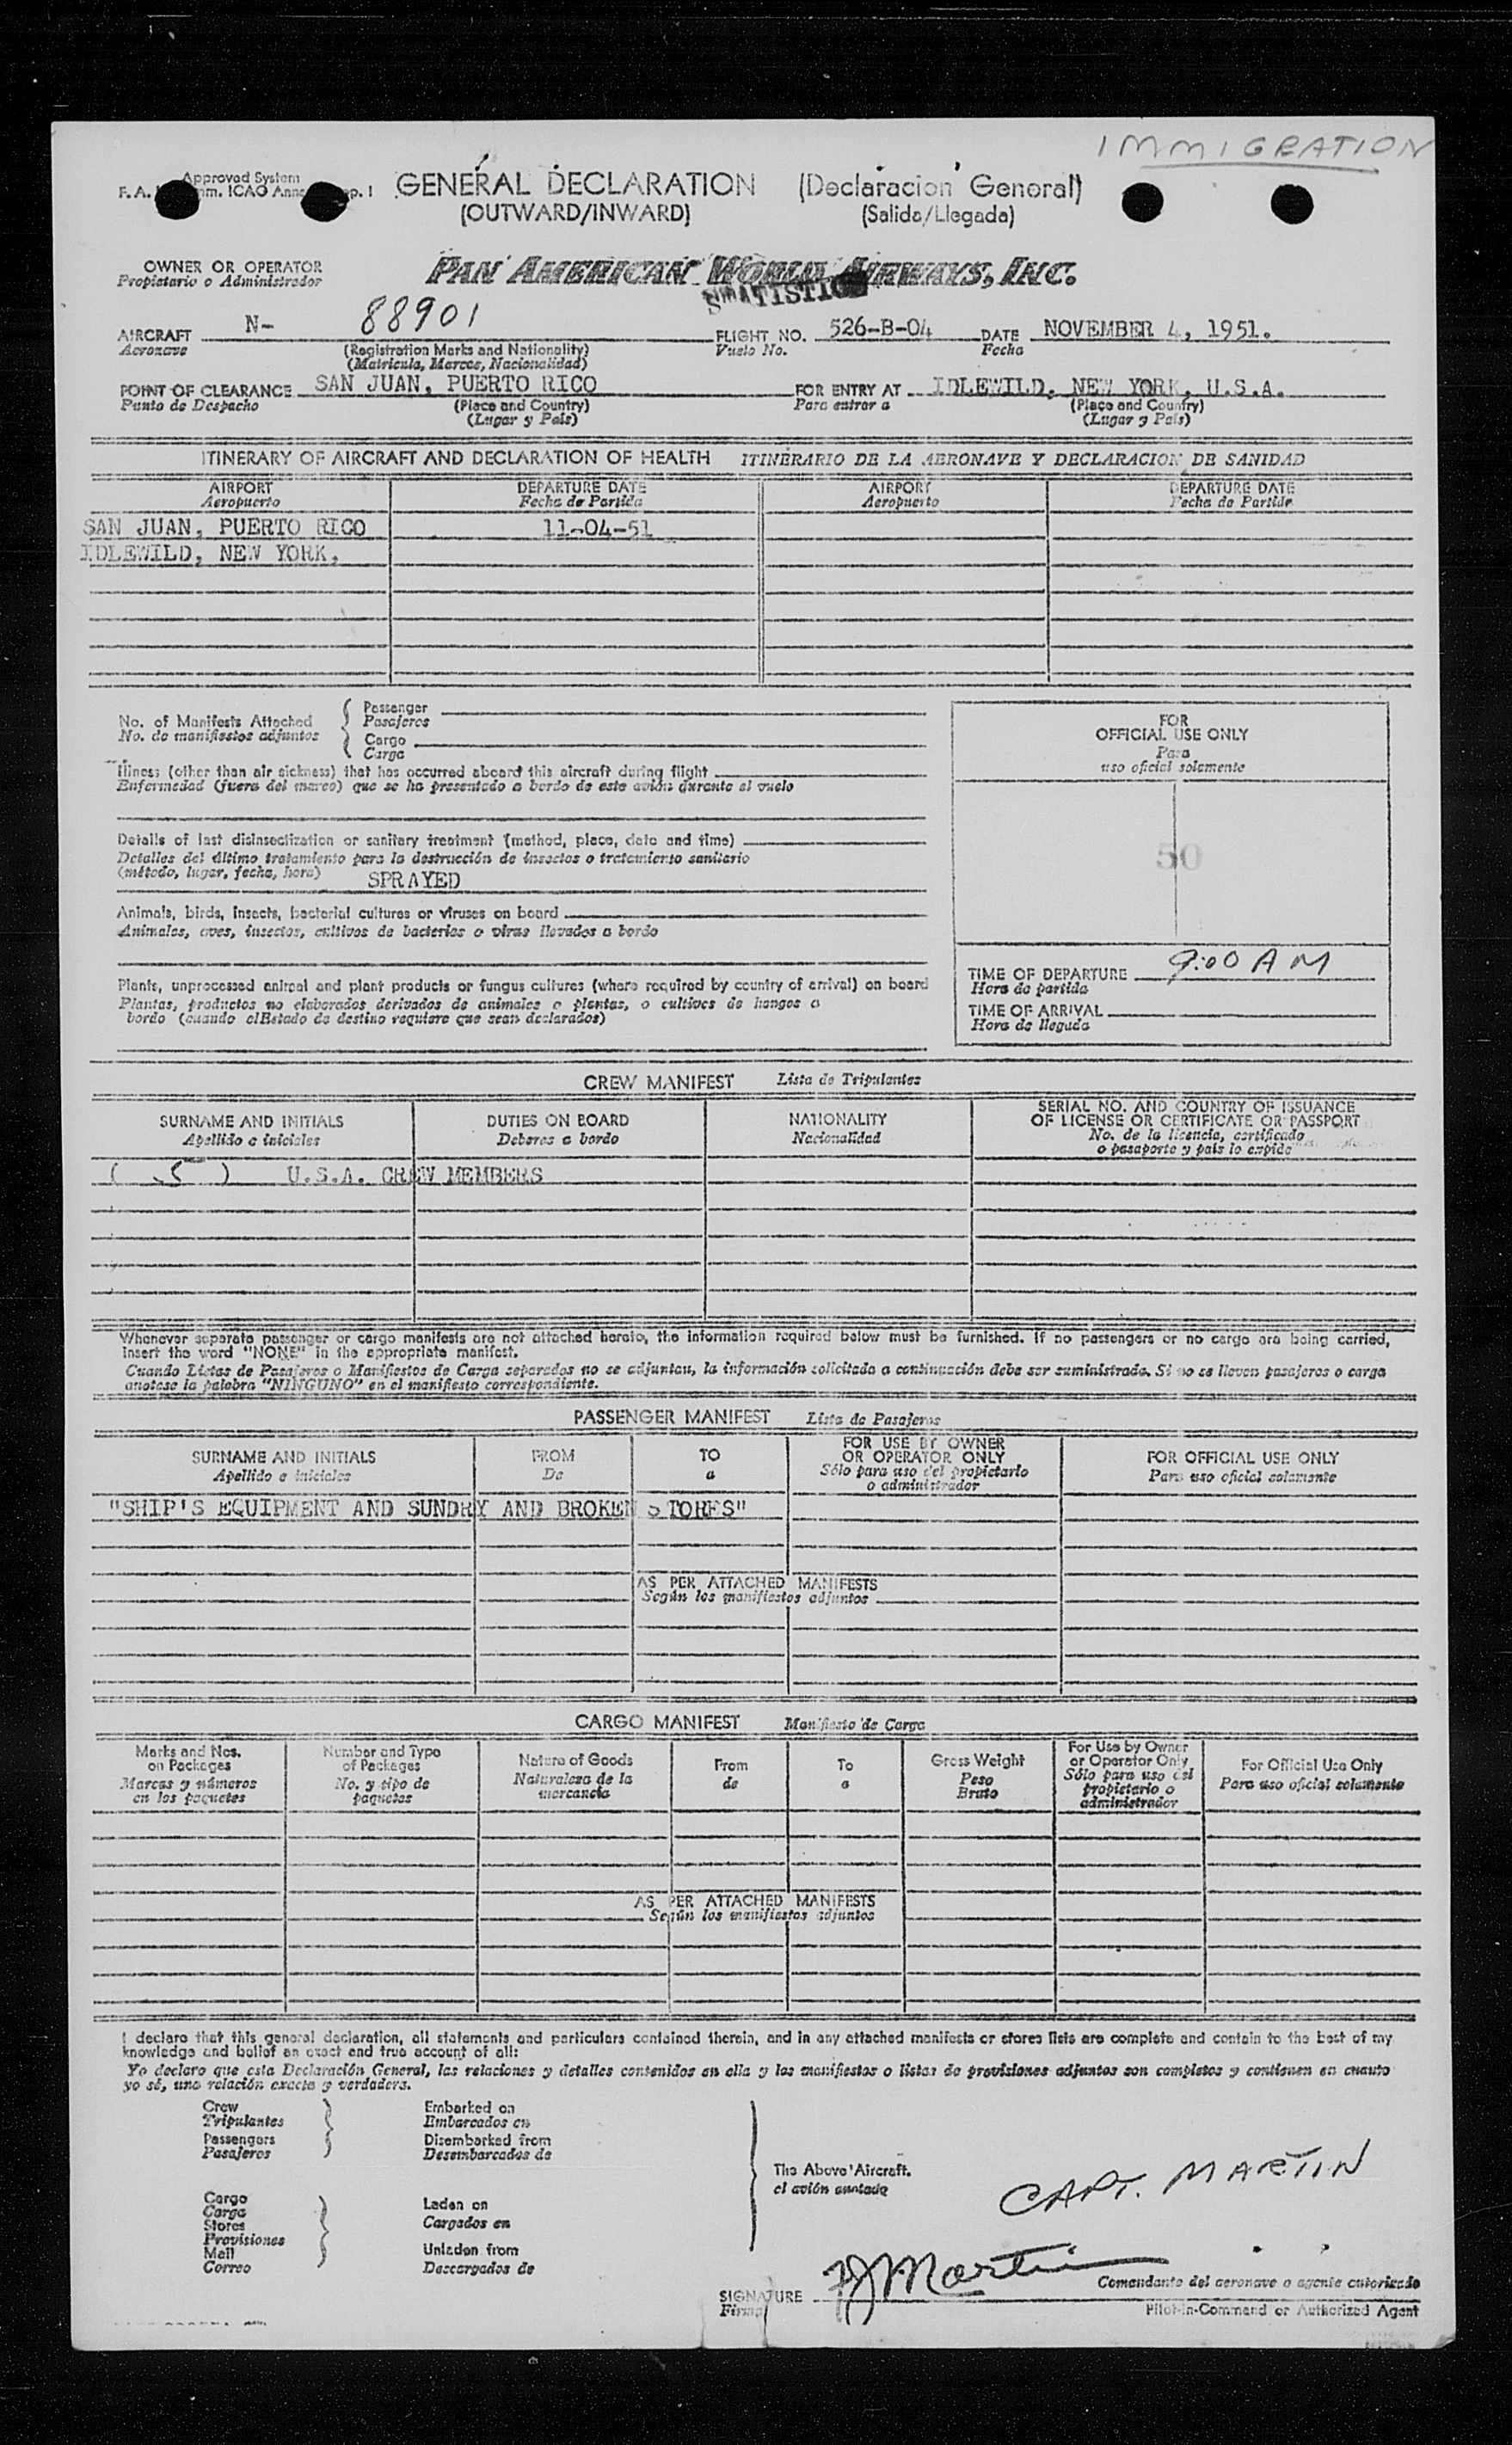 IMMIGRATION
Approved System
GENERAL DECLARATION (Declaracion General)
(OUTWARD/INWARD) (Salida/Llegada)
OWNER OR OPERATOR PAN AMERICAN WORLD AIRWAYS, INC.
Propietario o Administrador
AIRCRAFT N- 88901 FLIGHT NO. 526-B-04 DATE NOVEMBER 4, 1951.
Aeronave (Registration Marks and Nationality) Vuelo No. Fecha
(Matricula, Marcas, Nacionalidad)
POINT OF CLEARANCE SAN JUAN, PUERTO RICO FOR ENTRY AT IDLEWILD, NEW YORK, U.S.A.
Punto de Despacho (Place and Country) Para entrar a (Place and Country)
(Lugar y País) (Lugar y País)
ITINERARY OF AIRCRAFT AND DECLARATION OF HEALTH ITINERARIO DE LA AERONAVE Y DECLARACION DE SANIDAD
AIRPORT DEPARTURE DATE AIRPORT DEPARTURE DATE
Aeropuerto Fecha de Partida Aeropuerto Fecha de Partida
SAN JUAN, PUERTO RICO 11-04-51
IDLEWILD, NEW YORK,
No. of Manifests Attached Passenger
No. de manifiestos adjuntos Pasajeros
Cargo
Carga
FOR
OFFICIAL USE ONLY
Para
uso oficial solamente
50
Illness (other than air sickness) that has occurred aboard this aircraft during flight
Enfermedad (fuera del mareo) que se ha presentado a bordo de este avión durante el vuelo
Details of last disinsectization or sanitary treatment (method, place, date and time)
Detalles del último tratamiento para la destrucción de insectos o tratamiento sanitario
(método, lugar, fecha, hora) SPRAYED
Animals, birds, insects, bacterial cultures or viruses on board
Animales, aves, insectos, cultivos de bacterias o virus llevados a bordo
Plants, unprocessed animal and plant products or fungus cultures (where required by country of arrival) on board
Plantas, productos no elaborados derivados de animales o plantas, o cultivos de hongos a
bordo (cuando el Estado de destino requiere que sean declarados)
TIME OF DEPARTURE 9:00 AM
Hora de partida
TIME OF ARRIVAL
Hora de llegada
CREW MANIFEST Lista de Tripulantes
SURNAME AND INITIALS DUTIES ON BOARD NATIONALITY SERIAL NO. AND COUNTRY OF ISSUANCE
OF LICENSE OR CERTIFICATE OR PASSPORT
Apellido e iniciales Deberes a bordo Nacionalidad No. de la licencia, certificado
o pasaporte y país lo expide
( 5 ) U.S.A. CREW MEMBERS
Whenever separate passenger or cargo manifests are not attached hereto, the information required below must be furnished. If no passengers or no cargo are being carried,
insert the word "NONE" in the appropriate manifest.
Cuando Listas de Pasajeros o Manifiestos de Carga separados no se adjuntan, la información solicitada a continuación debe ser suministrada. Si no se llevan pasajeros o carga
anotese la palabra "NINGUNO" en el manifiesto correspondiente.
PASSENGER MANIFEST Lista de Pasajeros
SURNAME AND INITIALS FROM TO FOR USE BY OWNER
OR OPERATOR ONLY FOR OFFICIAL USE ONLY
Apellido e iniciales De a Sólo para uso del propietario
o administrador Para uso oficial solamente
"SHIP'S EQUIPMENT AND SUNDRY AND BROKEN STORES"
AS PER ATTACHED MANIFESTS
Según los manifiestos adjuntos
CARGO MANIFEST Manifiesto de Carga
Marks and Nos.
on Packages
Marcas y números
en los paquetes
Number and Type
of Packages
No. y tipo de
paquetes
Nature of Goods
Naturaleza de la
mercancía
From
de
To
a
Gross Weight
Peso
Bruto
For Use by Owner
or Operator Only
Sólo para uso del
propietario o
administrador
For Official Use Only
Para uso oficial solamente
AS PER ATTACHED MANIFESTS
Según los manifiestos adjuntos
I declare that this general declaration, all statements and particulars contained therein, and in any attached manifests or stores lists are complete and contain to the best of my
knowledge and belief an exact and true account of all:
Yo declaro que esta Declaración General, las relaciones y detalles contenidos en ella y los manifiestos o listas de provisiones adjuntos son completos y contienen en cuanto
yo sé, una relación exacta y verdadera.
Crew Embarked on
Tripulantes Embarcados en
Passengers Disembarked from
Pasajeros Desembarcados de
The Above Aircraft.
el avión anotado
CAPT. MARTIN
Cargo Laden on
Carga
Stores Cargados en
Provisiones
Mail Unladen from
Correo Descargados de
SIGNATURE Martin
Firma
Comandante del aeronave o agente autorizado
Pilot-in-Command or Authorized Agent